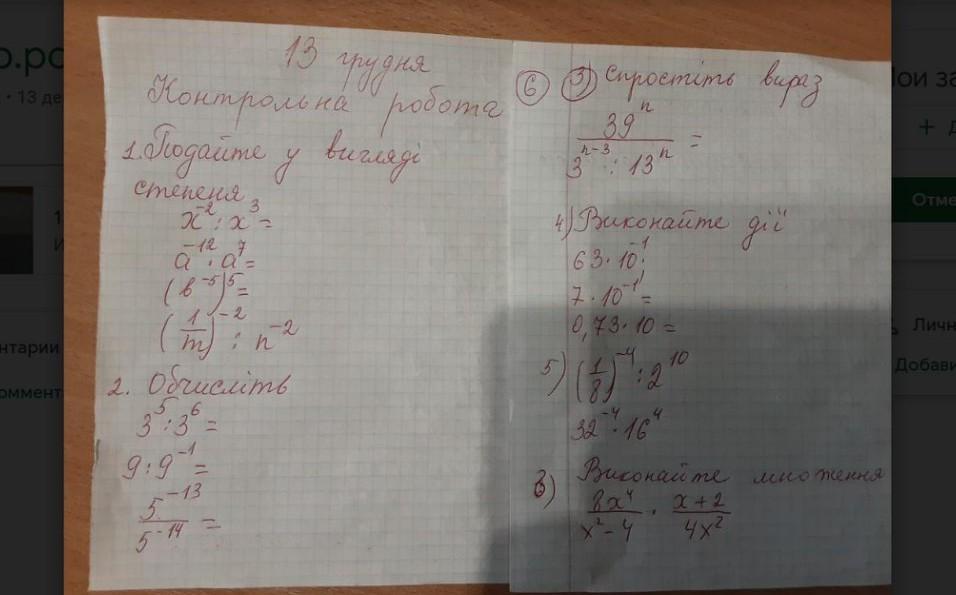 13 грудня
Контрольна робота
1. Подайте у вигляді
степеня
x⁻² : x³ =
a⁻¹² · a⁷ =
(в⁻⁵)⁵ =
(1/m)⁻² : n⁻²
2. Обчисліть
3⁵ : 3⁶ =
9 : 9⁻¹ =
5⁻¹³ / 5⁻¹⁴ =
6 3) Спростіть вираз
39ⁿ / 3ⁿ⁻³ : 13ⁿ =
4) Виконайте дії
63 · 10⁻¹ :
7 · 10⁻¹ =
0,73 · 10 =
5) (1/8)⁻⁴ : 2¹⁰
32⁻⁴ · 16⁴
6) Виконайте множення
8x⁴ / x² - 4 · x + 2 / 4x²
• 13 де
Отме
Личн
Добави
нтарии